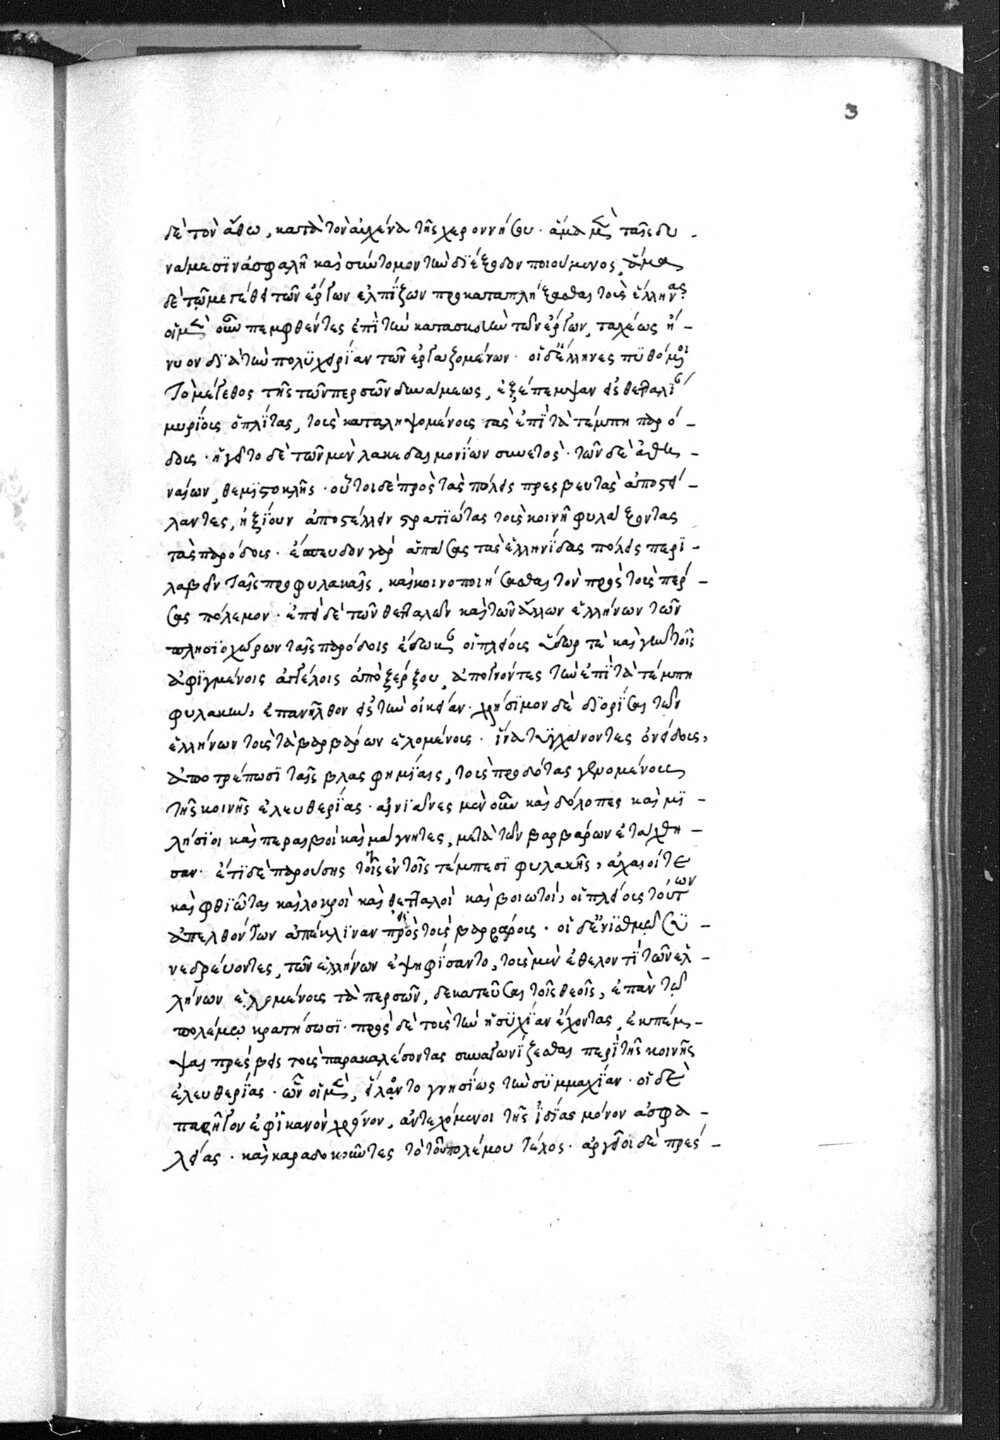 3
δὲ τὸν ἄθω, κατὰ τὸν αὐχένα τῆς χεροννήσου· ἅμα μὲν ταῖς δυ-
νάμεσιν ἀσφαλῆ καὶ σύντομον τὴν διέξοδον ποιούμενος, ἅμα
δὲ τῷ μεγέθει τῶν ἔργων ἐλπίζων προκαταπλήξασθαι τοὺς ἕλληνας
οἱ μὲν οὖν πεμφθέντες ἐπὶ τὴν κατασκευὴν τῶν ἔργων, ταχέως ἤ-
νυον διὰ τὴν πολυχειρίαν τῶν ἐργαζομένων· οἱ δ' ἕλληνες πυθόμενοι
τὸ μέγεθος τῆς τῶν περσῶν δυνάμεως, ἐξέπεμψαν εἰς θετταλίαν
μυρίους ὁπλίτας, τοὺς καταληψομένους τὰς ἐπὶ τὰ τέμπη παρό-
δους· ἡγεῖτο δὲ τῶν μὲν λακεδαιμονίων συνετὸς· τῶν δὲ ἀθη-
ναίων, θεμιστοκλῆς· οὗτοι δὲ πρὸς τὰς πόλεις πρεσβευτὰς ἀποστεί-
λαντες, ἠξίουν ἀποστέλλειν στρατιώτας τοὺς κοινῇ φυλάξοντας
τὰς παρόδους· ἔσπευδον γὰρ ἁπάσας τὰς ἑλληνίδας πόλεις περι-
λαβεῖν ταῖς προφυλακαῖς, καὶ κοινοποιήσασθαι τὸν πρὸς τοὺς πέρ-
σας πόλεμον· ἐπεὶ δὲ τῶν θετταλῶν καὶ τῶν ἄλλων ἑλλήνων τῶν
πλησιοχώρων ταῖς παρόδοις ἔδωκαν οἱ πλείους ὕδωρ τε καὶ γῆν τοῖς
ἀφιγμένοις ἀγγέλοις ἀπὸ ξέρξου, ἀπογνόντες τὴν ἐπὶ τὰ τέμπη
φυλακὴν, ἐπανῆλθον εἰς τὴν οἰκείαν· χρήσιμον δὲ διορίσαι τῶν
ἑλλήνων τοὺς τὰ βαρβάρων ἑλομένους· ἵνα τυγχάνοντες ὀνείδους,
ἀποτρέπωσι ταῖς βλασφημίαις, τοὺς προδότας γενομένους
τῆς κοινῆς ἐλευθερίας· αἰνιᾶνες μὲν οὖν καὶ δόλοπες καὶ μι-
λήσιοι καὶ περαιβοὶ καὶ μάγνητες, μετὰ τῶν βαρβάρων ἐτάχθη-
σαν· ἔτι δὲ παρούσης τῆς ἐν τοῖς τέμπεσι φυλακῆς, ἀχαιοί τε
καὶ φθιῶται καὶ λοκροὶ καὶ θετταλοὶ καὶ βοιωτοὶ, οἱ πλείους τούτων
ἀπελθόντων ἀπέκλιναν πρὸς τοὺς βαρβάρους· οἱ δ' ἐν ἰσθμῷ συ-
νεδρεύοντες, τῶν ἑλλήνων ἐψηφίσαντο, τοὺς μὲν ἐθελοντὶ τῶν ἑλ-
λήνων ἑλομένους τὰ περσῶν, δεκατεῦσαι τοῖς θεοῖς, ἐπὰν τῷ
πολέμῳ κρατήσωσι· πρὸς δὲ τοὺς τὴν ἡσυχίαν ἔχοντας, ἐκπέμ-
ψαι πρέσβεις τοὺς παρακαλέσοντας συναγωνίζεσθαι περὶ τῆς κοινῆς
ἐλευθερίας· ὧν οἱ μὲν, εἵλοντο γνησίως τὴν συμμαχίαν· οἱ δὲ
παρῆγον ἐφ' ἱκανὸν χρόνον, ἀντεχόμενοι τῆς ἰδίας μόνον ἀσφα-
λείας· καὶ καραδοκοῦντες τὸ τοῦ πολέμου τέλος· ἀργεῖοι δὲ πρέσ-